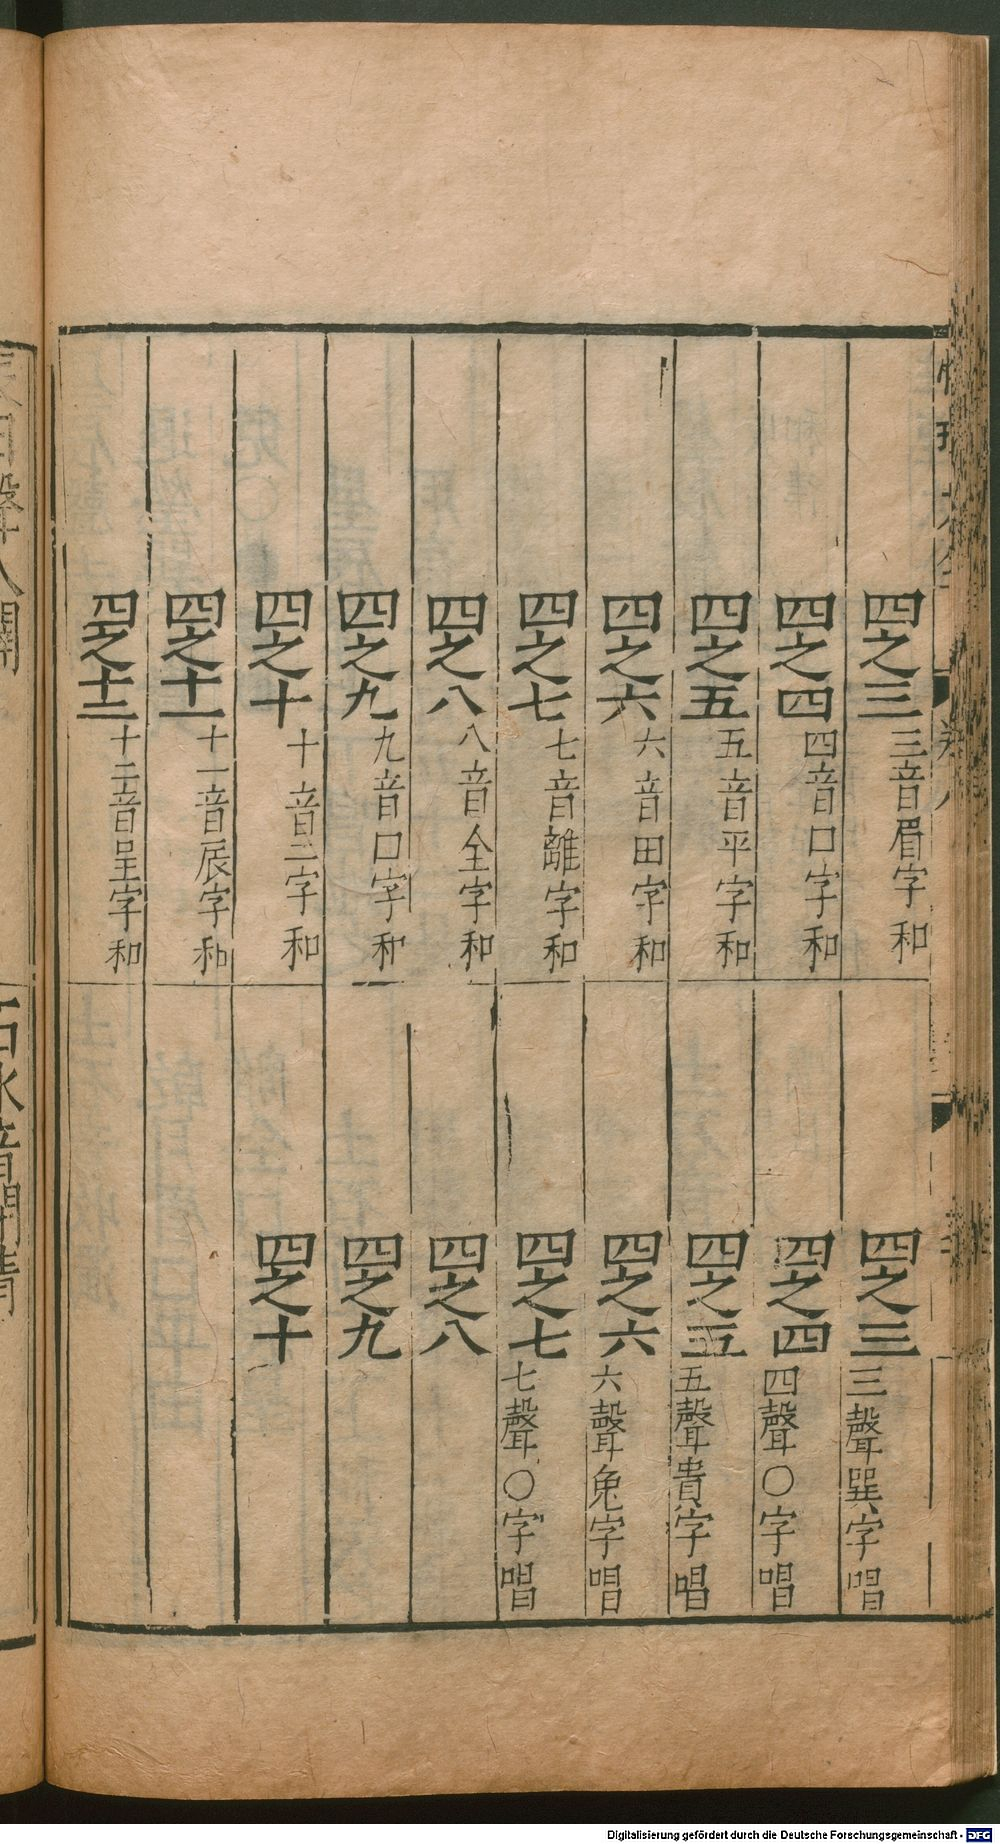 四之三三音眉字和
四之四四音口字和
四之五五音平字和
四之六六音田字和
四之七七音離字和
四之八八音全字和
四之九九音口字和
四之十十音二字和
四之十一十一音辰字和
四之十二十二音呈字和
四之三三聲巽字唱
四之四四聲〇字唱
四之五五聲貴字唱
四之六六聲兔字唱
四之七七聲〇字唱
四之八
四之九
四之十
目聲
闢
石水音開清
Digitalisierung gefördert durch die Deutsche Forschungsgemeinschaft - DFG